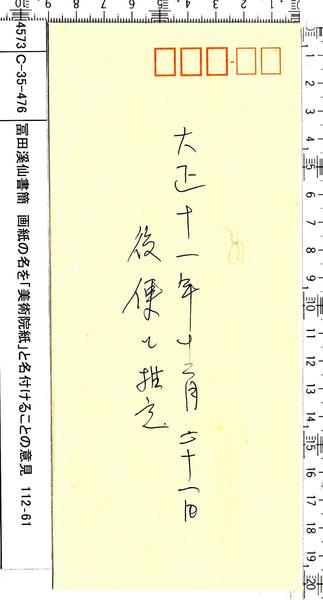 大正十一年十二月二十一日
後便と推定
4573 C-35-476 冨田溪仙書簡 画紙の名を「美術院紙」と名付けることの意見 112-61